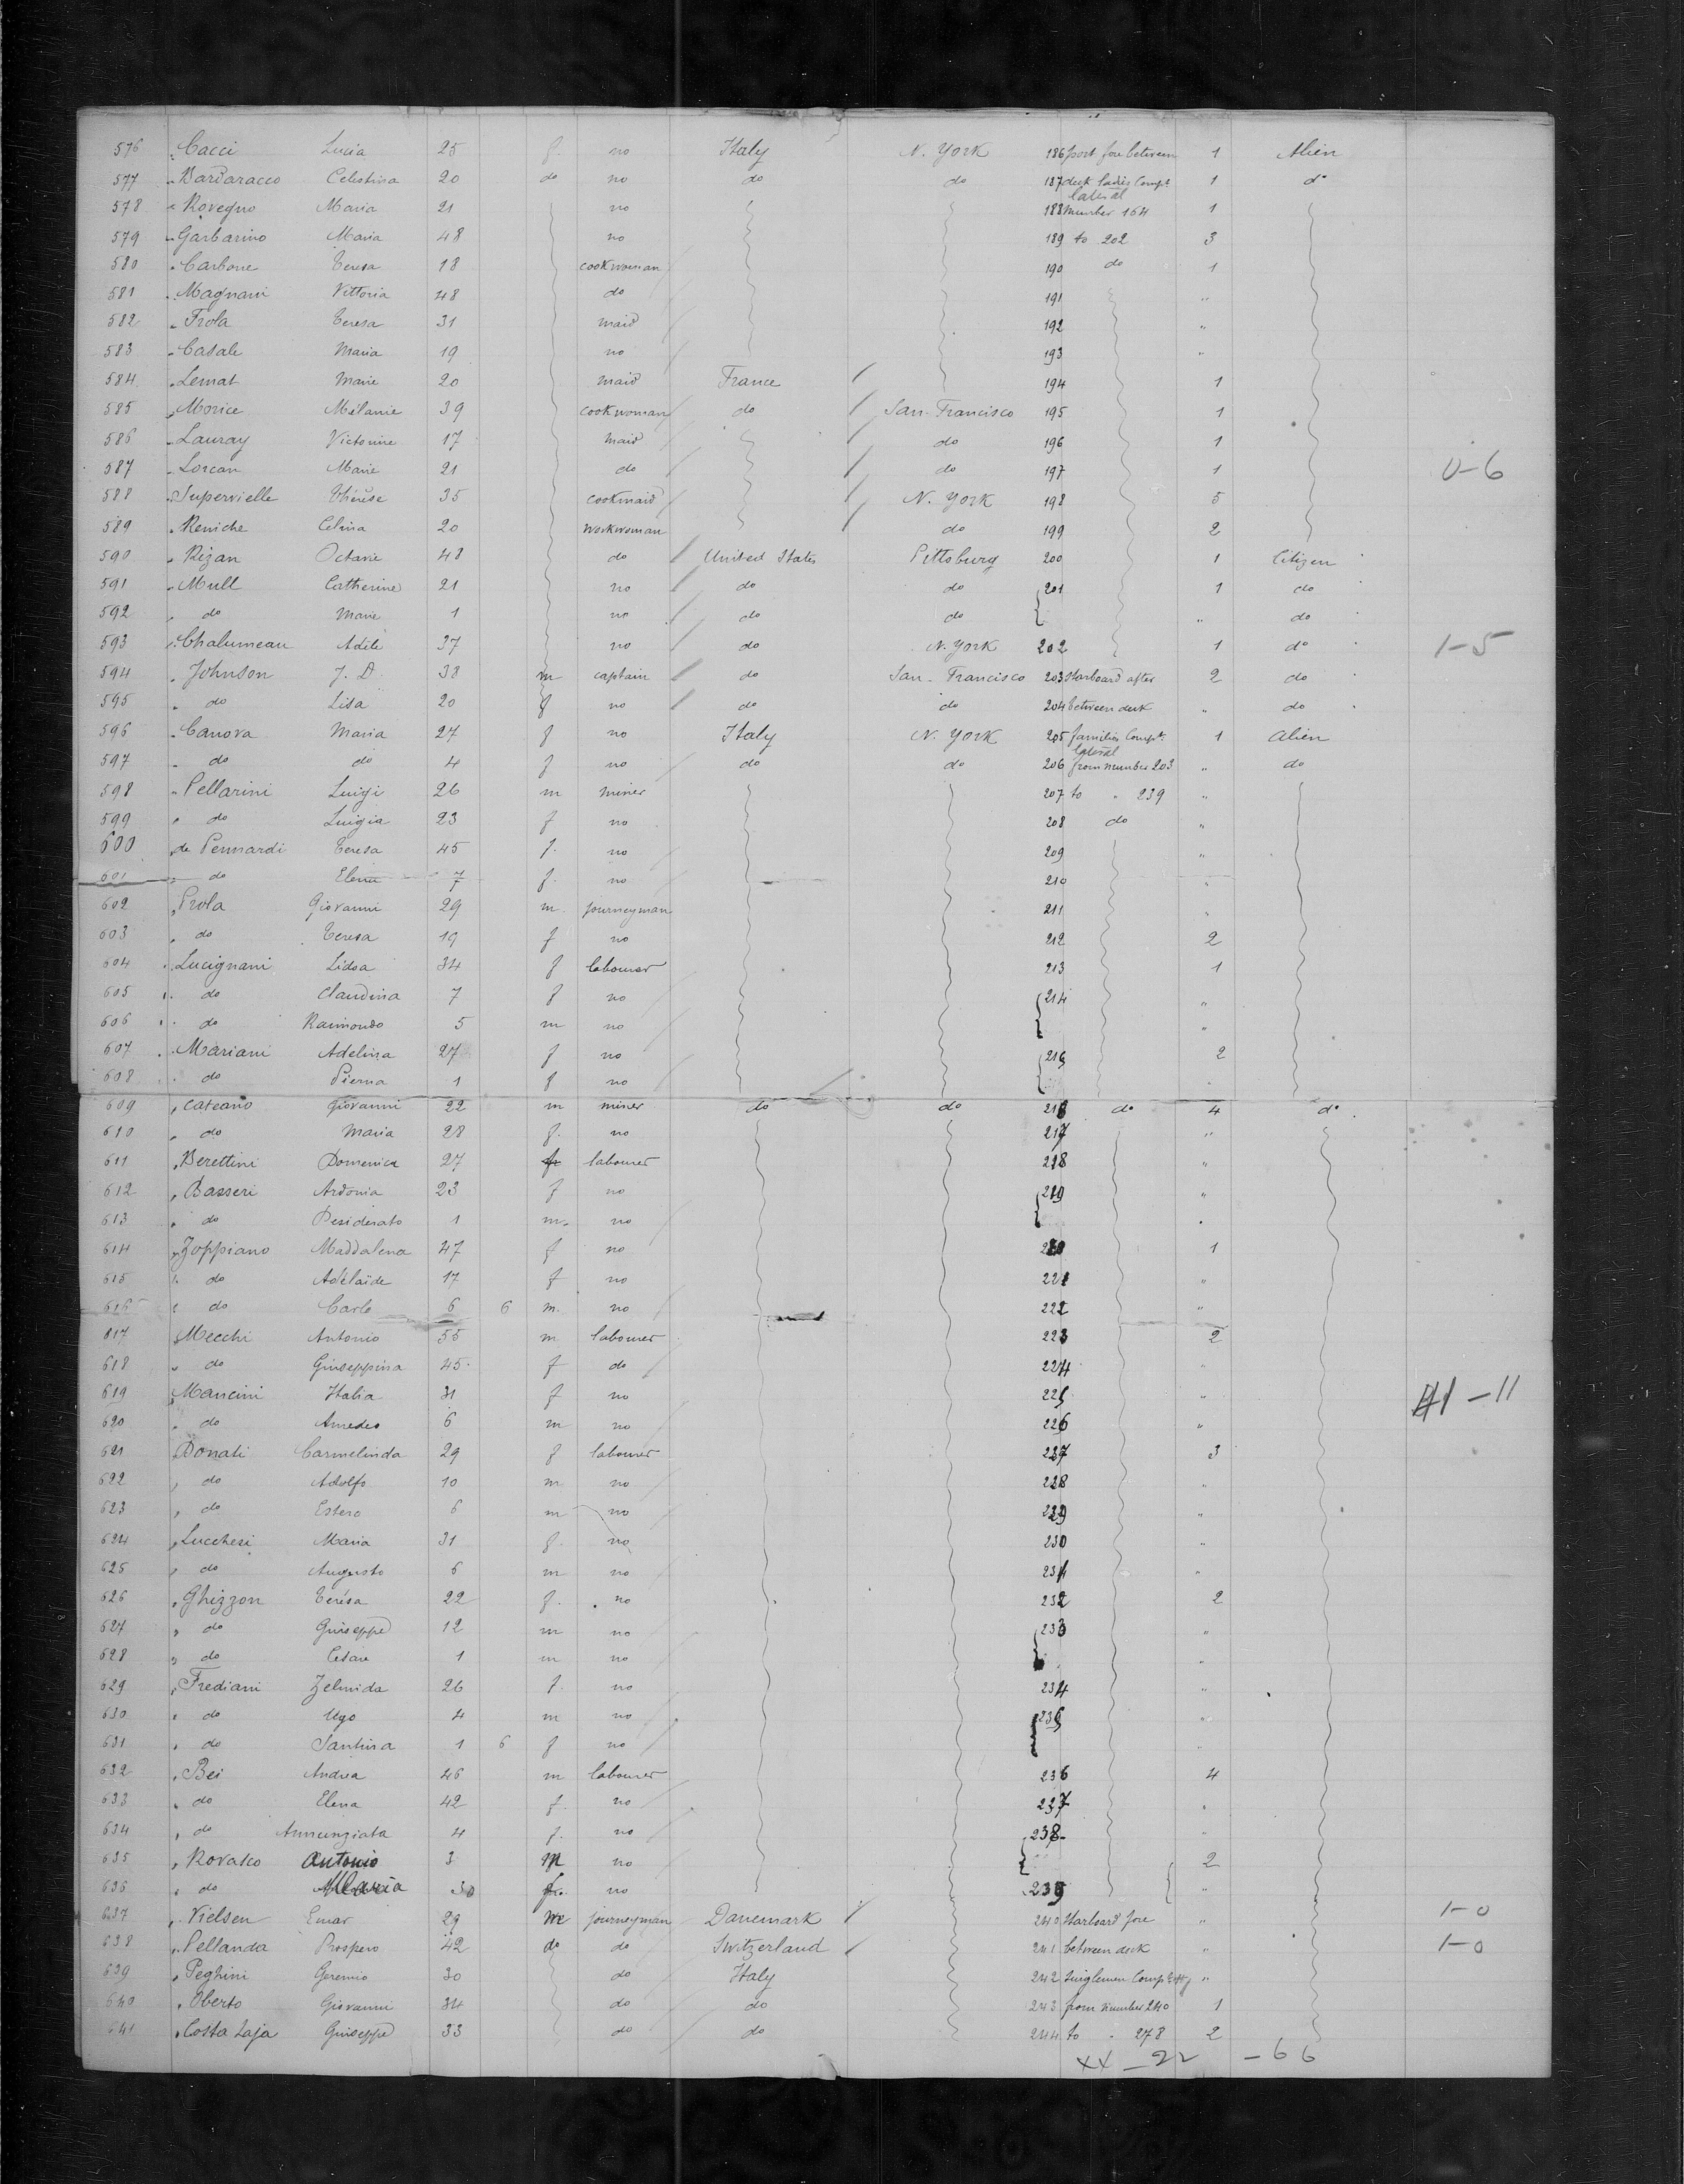 576 Cacci Lucia 25 f. no Italy N. York 186 port fore between 1 Alien
577 " Bardaracco Celestina 20 do no do do 187 deck ladies Compt 1 do
lateral
578 " Rovegno Maria 21 no 188 number 164 1
579 " Garbarino Maria 48 no 189 to 202 3
580 " Carbone Teresa 18 cookwoman 190 do 1
581 " Magnani Vittoria 48 do 191 "
582 " Frola Teresa 31 maid 192 "
583 " Casale Maria 19 no 193 "
584 " Lemat Marie 20 maid France 194 1
585 " Morice Mélanie 39 cookwoman do San-Francisco 195 1
586 " Lauray Victorine 17 maid do 196 1
587 " Lorcan Marie 21 do do 197 1 0-6
588 " Supervielle Thérèse 35 cookmaid N. York 198 5
589 " Reniche Celina 20 workwoman do 199 2
590 " Rizan Octavie 48 do United States Pittsburg 200 1 Citizen
591 " Mull Catherine 21 no do do 201 1 do
592 " do Marie 1 no do do " do
593 " Chalumeau Adèle 37 no do N. York 202 1 do 1-5
594 " Johnson J. D. 38 m captain do San-Francisco 203 Starboard after 2 do
595 " do Lisa 20 f no do do 204 between deck " do
596 " Canova Maria 27 f no Italy N. York 205 families Compt. 1 Alien
lateral
597 " do do 4 f no do do 206 from number 203 " do
598 " Pellarini Luigi 26 m miner 207 to " 239 "
599 " do Luigia 23 f no 208 do "
600 de Pennardi Teresa 45 f. no 209 "
601 " do Elena 7 f. no 210 "
602 " Prola Giovanni 29 m. journeyman 211 "
603 " do Teresa 19 f no 212 2
604 " Lucignani Lidsa 34 f labourer 213 1
605 " do Claudina 7 f no 214 "
606 " do Raimondo 5 m no "
607 " Mariani Adelina 27 f no 215 2
608 " do Pierna 1 f no
609 " Cateano Giovanni 22 m miner do do 216 do 4 do
610 " do Maria 28 f. no 217 "
611 " Berettini Domenica 27 f labourer 218 "
612 " Basseri Ardonia 23 f no 219 "
613 " do Desiderato 1 m. no "
614 " Zoppiano Maddalena 47 f no 220 1
615 " do Adélaïde 17 f no 221 "
616 " do Carlo 6 6 m. no 222 "
617 " Mecchi Antonio 55 m labourer 223 2
618 " do Giuseppina 45 f do 224 "
619 " Mancini Italia 31 f no 225 " 1-11
620 " do Amedeo 6 m no 226 "
621 Donati Carmelinda 29 f labourer 227 3
622 " do Adolfo 10 m no 228 "
623 " do Estero 6 m no 229 "
624 " Lucchesi Maria 31 f. no 230 "
625 " do Augusto 6 m no 231 "
626 " Ghizzon Térésa 22 f. no 232 2
627 " do Guiseppe 12 m no 233 "
628 " do Césare 1 m no "
629 " Frediani Zelmida 26 f. no 234 "
630 " do Ugo 4 m no 235 "
631 " do Santina 1 6 f no "
632 " Bei Andrea 46 m labourer 236 4
633 " do Elena 42 f. no 237 "
634 " do Annunziata 4 f. no 238 "
635 " Rovasco Antonio 3 m no 2
636 " do Maria 30 f. no 239 "
637 " Nielsen Emar 29 m journeyman Danemark 240 Starboard fore " 1-0
638 " Pellanda Prospero 42 do do Switzerland 241 between deck " 1-0
639 " Peghini Geremio 30 do Italy 242 Singlemen Compt "
640 " Oberto Giovanni 34 do do 243 from number 240 1
641 " Costa Laja Guiseppe 33 do do 244 to " 278 2
XX - 22 - 66